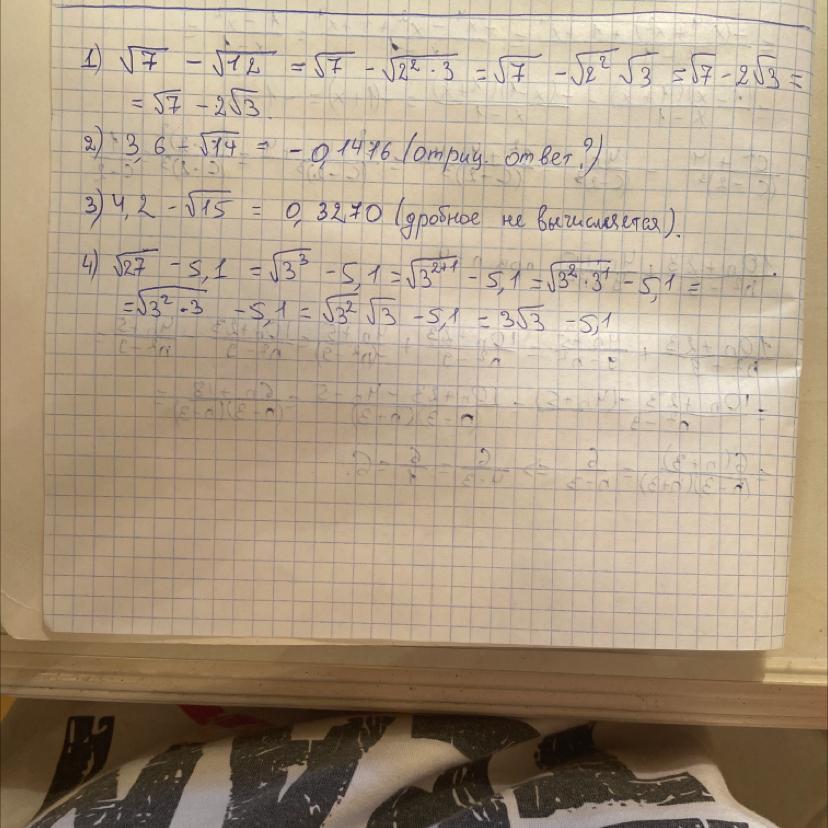 1) √7 - √12 = √7 - √(2² · 3) = √7 - √2² √3 = √7 - 2√3 =
= √7 - 2√3.
2) 3,6 - √14 = - 0,1416 (отриц. ответ?)
3) 4,2 - √15 = 0,3270 (дробное не вычисляется).
4) √27 - 5,1 = √3³ - 5,1 = √3²⁺¹ - 5,1 = √(3² · 3¹) - 5,1 =
= √(3² · 3) - 5,1 = √3² √3 - 5,1 = 3√3 - 5,1